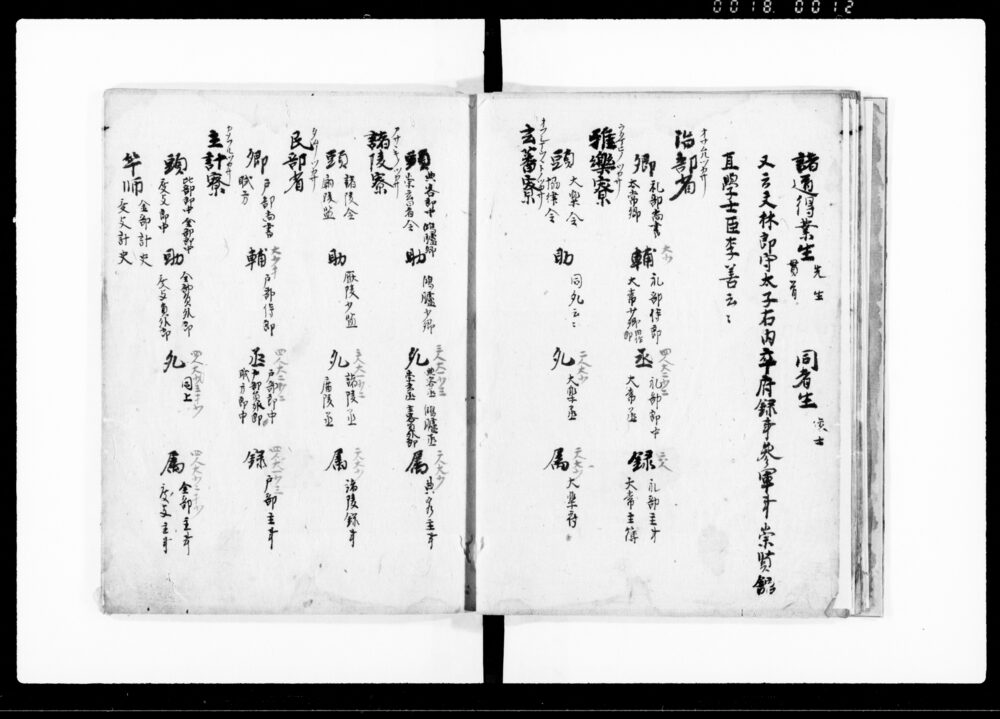 0018 0012
諸道得業生 先生 貫首 同者生
又云文林郎守太子右内率府録事參軍事崇賢館
直學士臣李善云々
治部省
卿 礼部尚書 太常卿 輔 礼部侍郎 大常少卿 丞 礼部郎中 大常丞 録 礼部主事 大常主簿
雅樂寮
頭 大樂令 協律令 助 同允云々 允 大樂丞 属 大樂府
玄蕃寮
頭 典客郎中 鴻臚卿 崇玄署令 助 鴻臚少卿 允 典客丞 鴻臚丞 崇玄丞 属 典客主事
諸陵寮
頭 諸陵令 廟陵監 助 廟陵少監 允 諸陵丞 廟陵丞 属 諸陵録事
民部省
卿 戸部尚書 職方 輔 戸部侍郎 丞 戸部郎中 戸部員外郎 職方郎中 録 戸部主事
主計寮
頭 比部郎中 金部郎中 度支郎中 助 金部員外郎 度支員外郎 允 同上 属 金部主事 度支主事
竿師 金部計史 度支計史